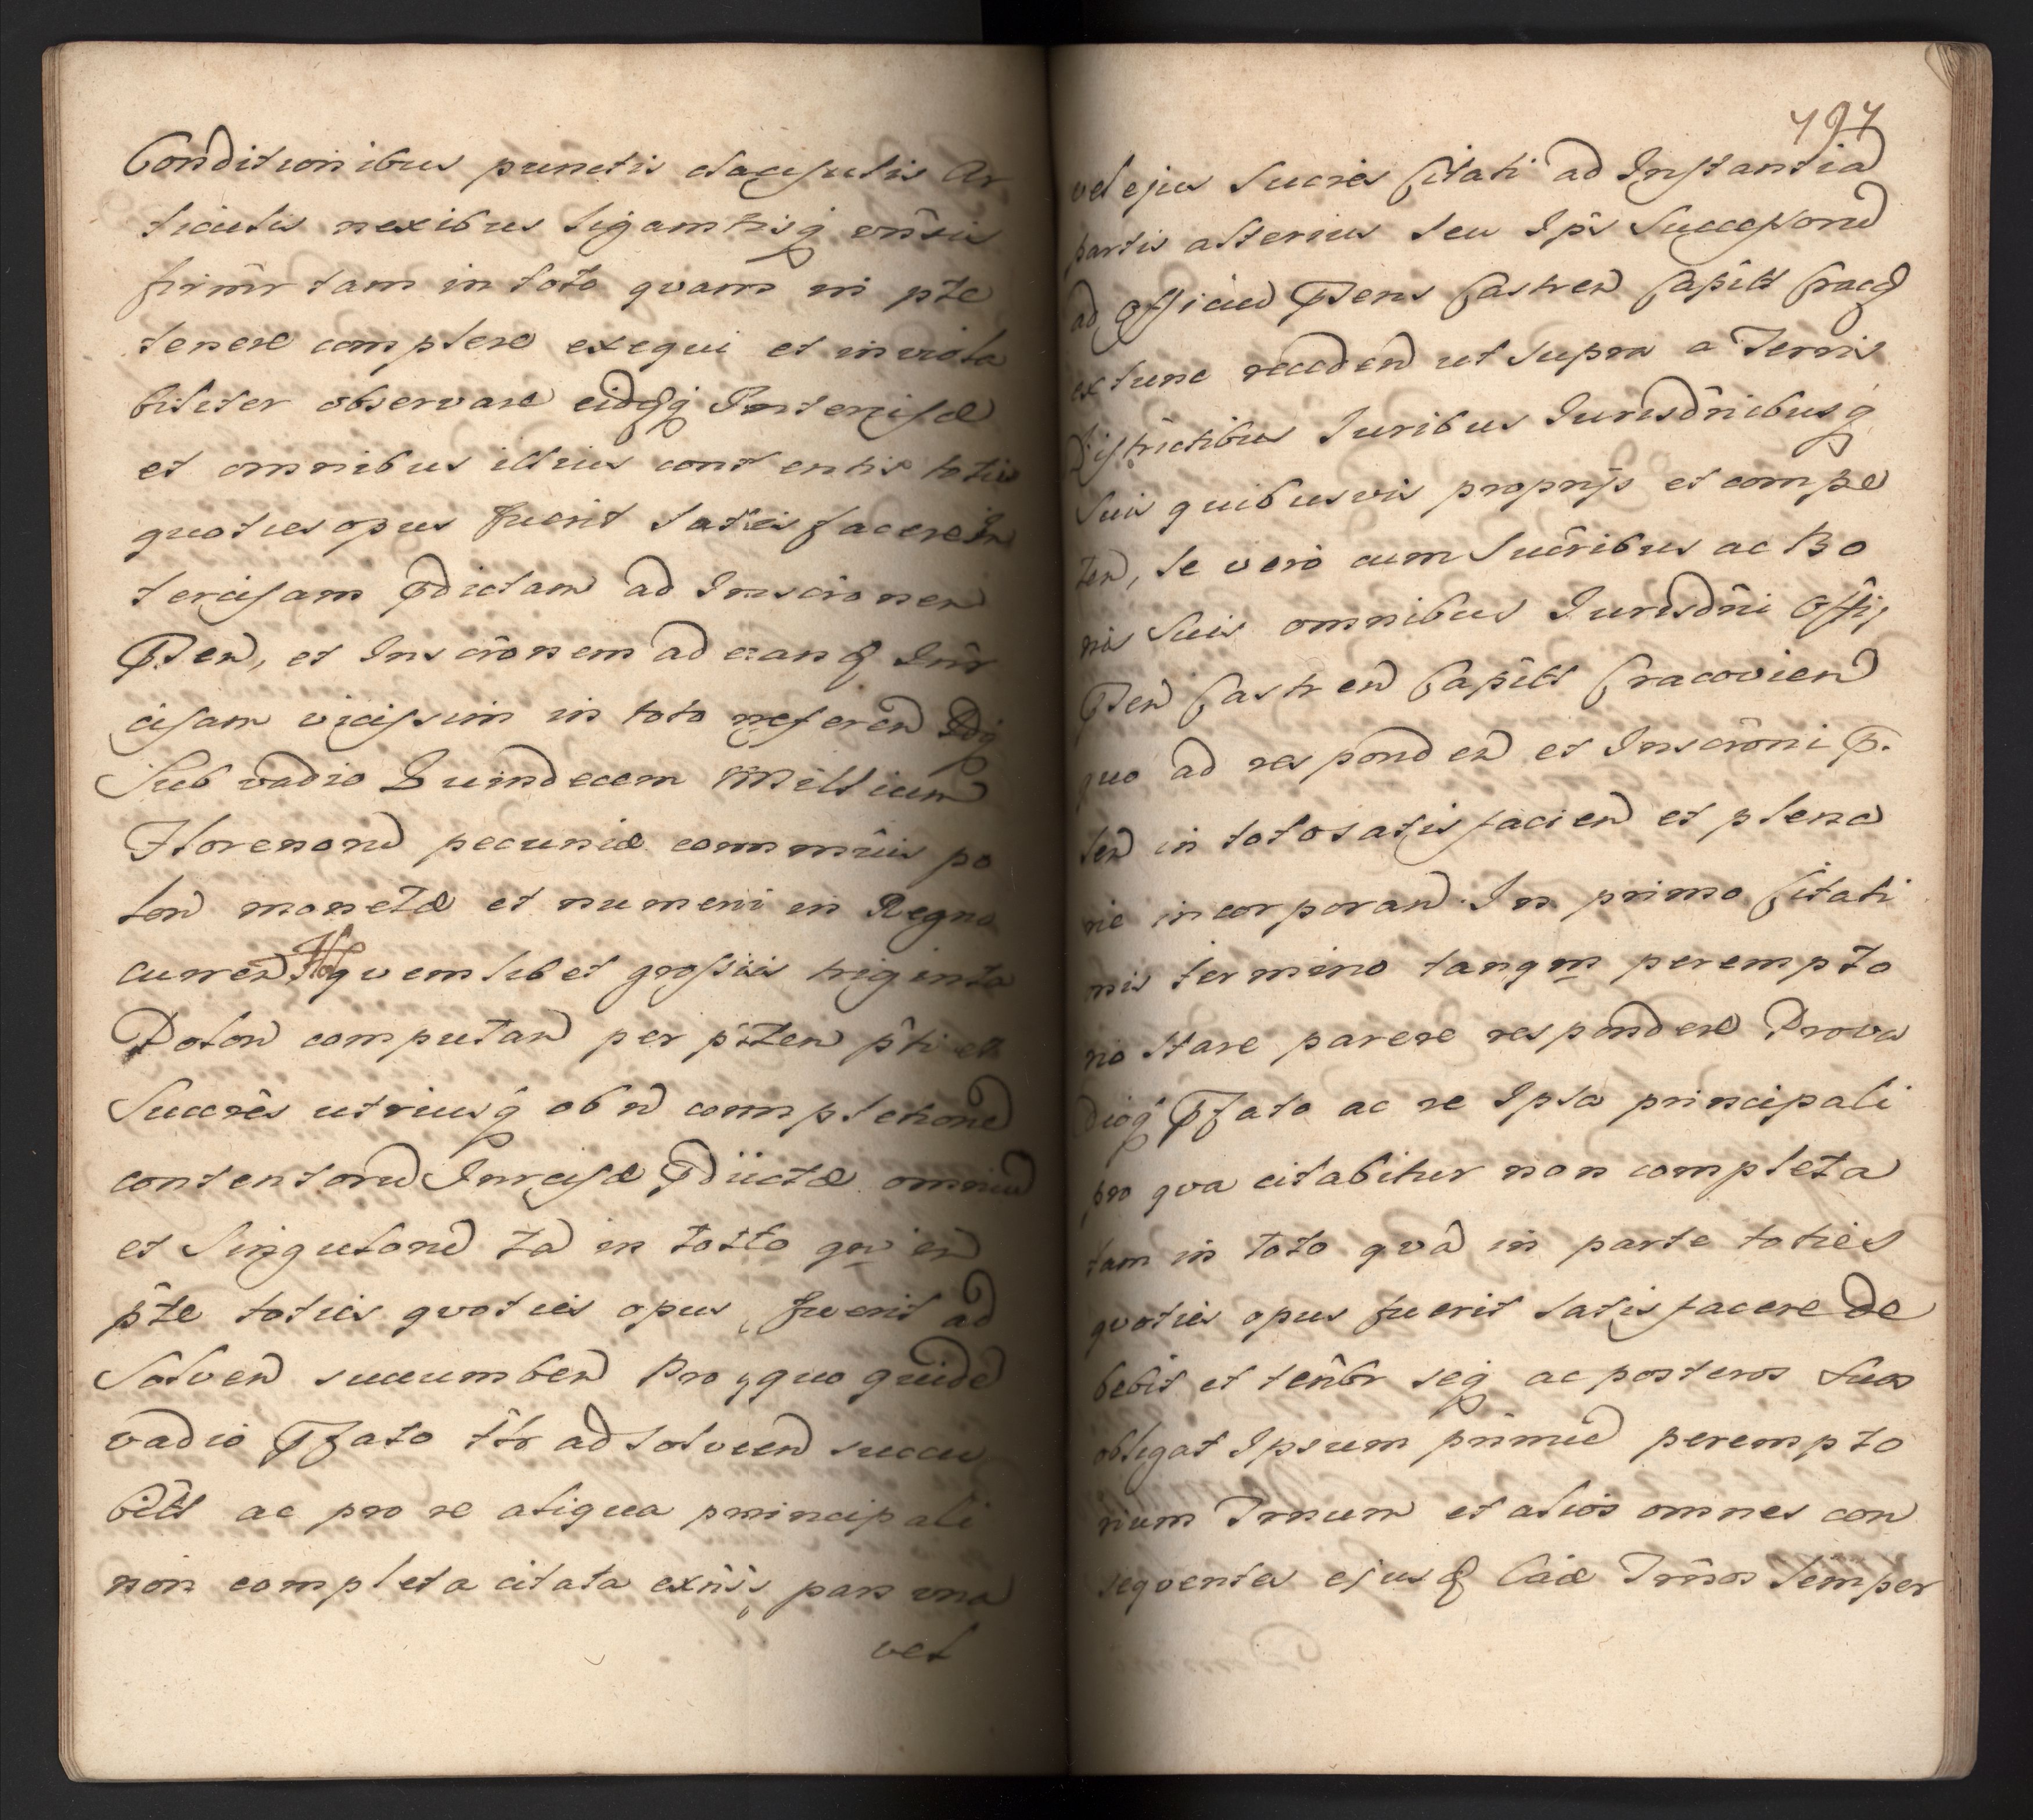 Conditionibus punctis clausulis Ar
ticulis nexibus ligamtisq; oñibus
firmr tam in toto quam in pte
tenere complere exequi et inviola
biliter observare eidqq Intercisæ
et omnibus illius contentis toties
quoties opus fuerit satisfacere In
tercisam pdictam ad Inscrionen
Psen, et Inscr̃onem ad eandq Inr
cisam vicissim in toto referen Idq
Sub vadio Quindecem Millium
Florenoru pecuniæ commũis po
lon monetæ et numeri in Regno
curren Flor quemlibet grossis triginta
Polon computan per p̃sten p̃ti et
Succr̃es utriusq ob ñ completione
contentoru Inrcisæ Pdiictæ omniu
et Singuloru ta in totto qm̃ in
p̃te toties quoties opus fuerit ad
Solven succumben Pro quo quide
vadio Pfato t̃tr ad solvend succu
bũt ac pro re aliqua principali
non completa citata exñs pars una
vel
797
vel ejus Succr̃es Citati ad Instantia
partis alterius seu Ip̃s Successoru
ad Officiu Psens Castren Capitt Cracq
extunc receden ut supra a Terris
Districtibus Juribus Jurisdñibusq
Suis quibusvis proprijs et compe
ten, se vero cum Succr̃ibus ac Bo
nis Suis omnibus Jurisdñi Offi,
Psen Castren Capitt Cracovien
quo ad responden et Inscr̃oni P.
ten in toto satisfacien et plena
rie incorporan. In primo Citati
onis termino tanqm perempto
rio Stare parere respondere Prova
dioq Pfato ac re Ipsa principali
pro qva citabitur non completa
tam in toto qvã in parte toties
qvoties opus fuerit satisfacere de
bebit et teñbr seq ac posteros suos
obligat Ipsum primũ perempto
rium Trnum et alios omnes con
seqventes ejusq Cãæ Trños semper